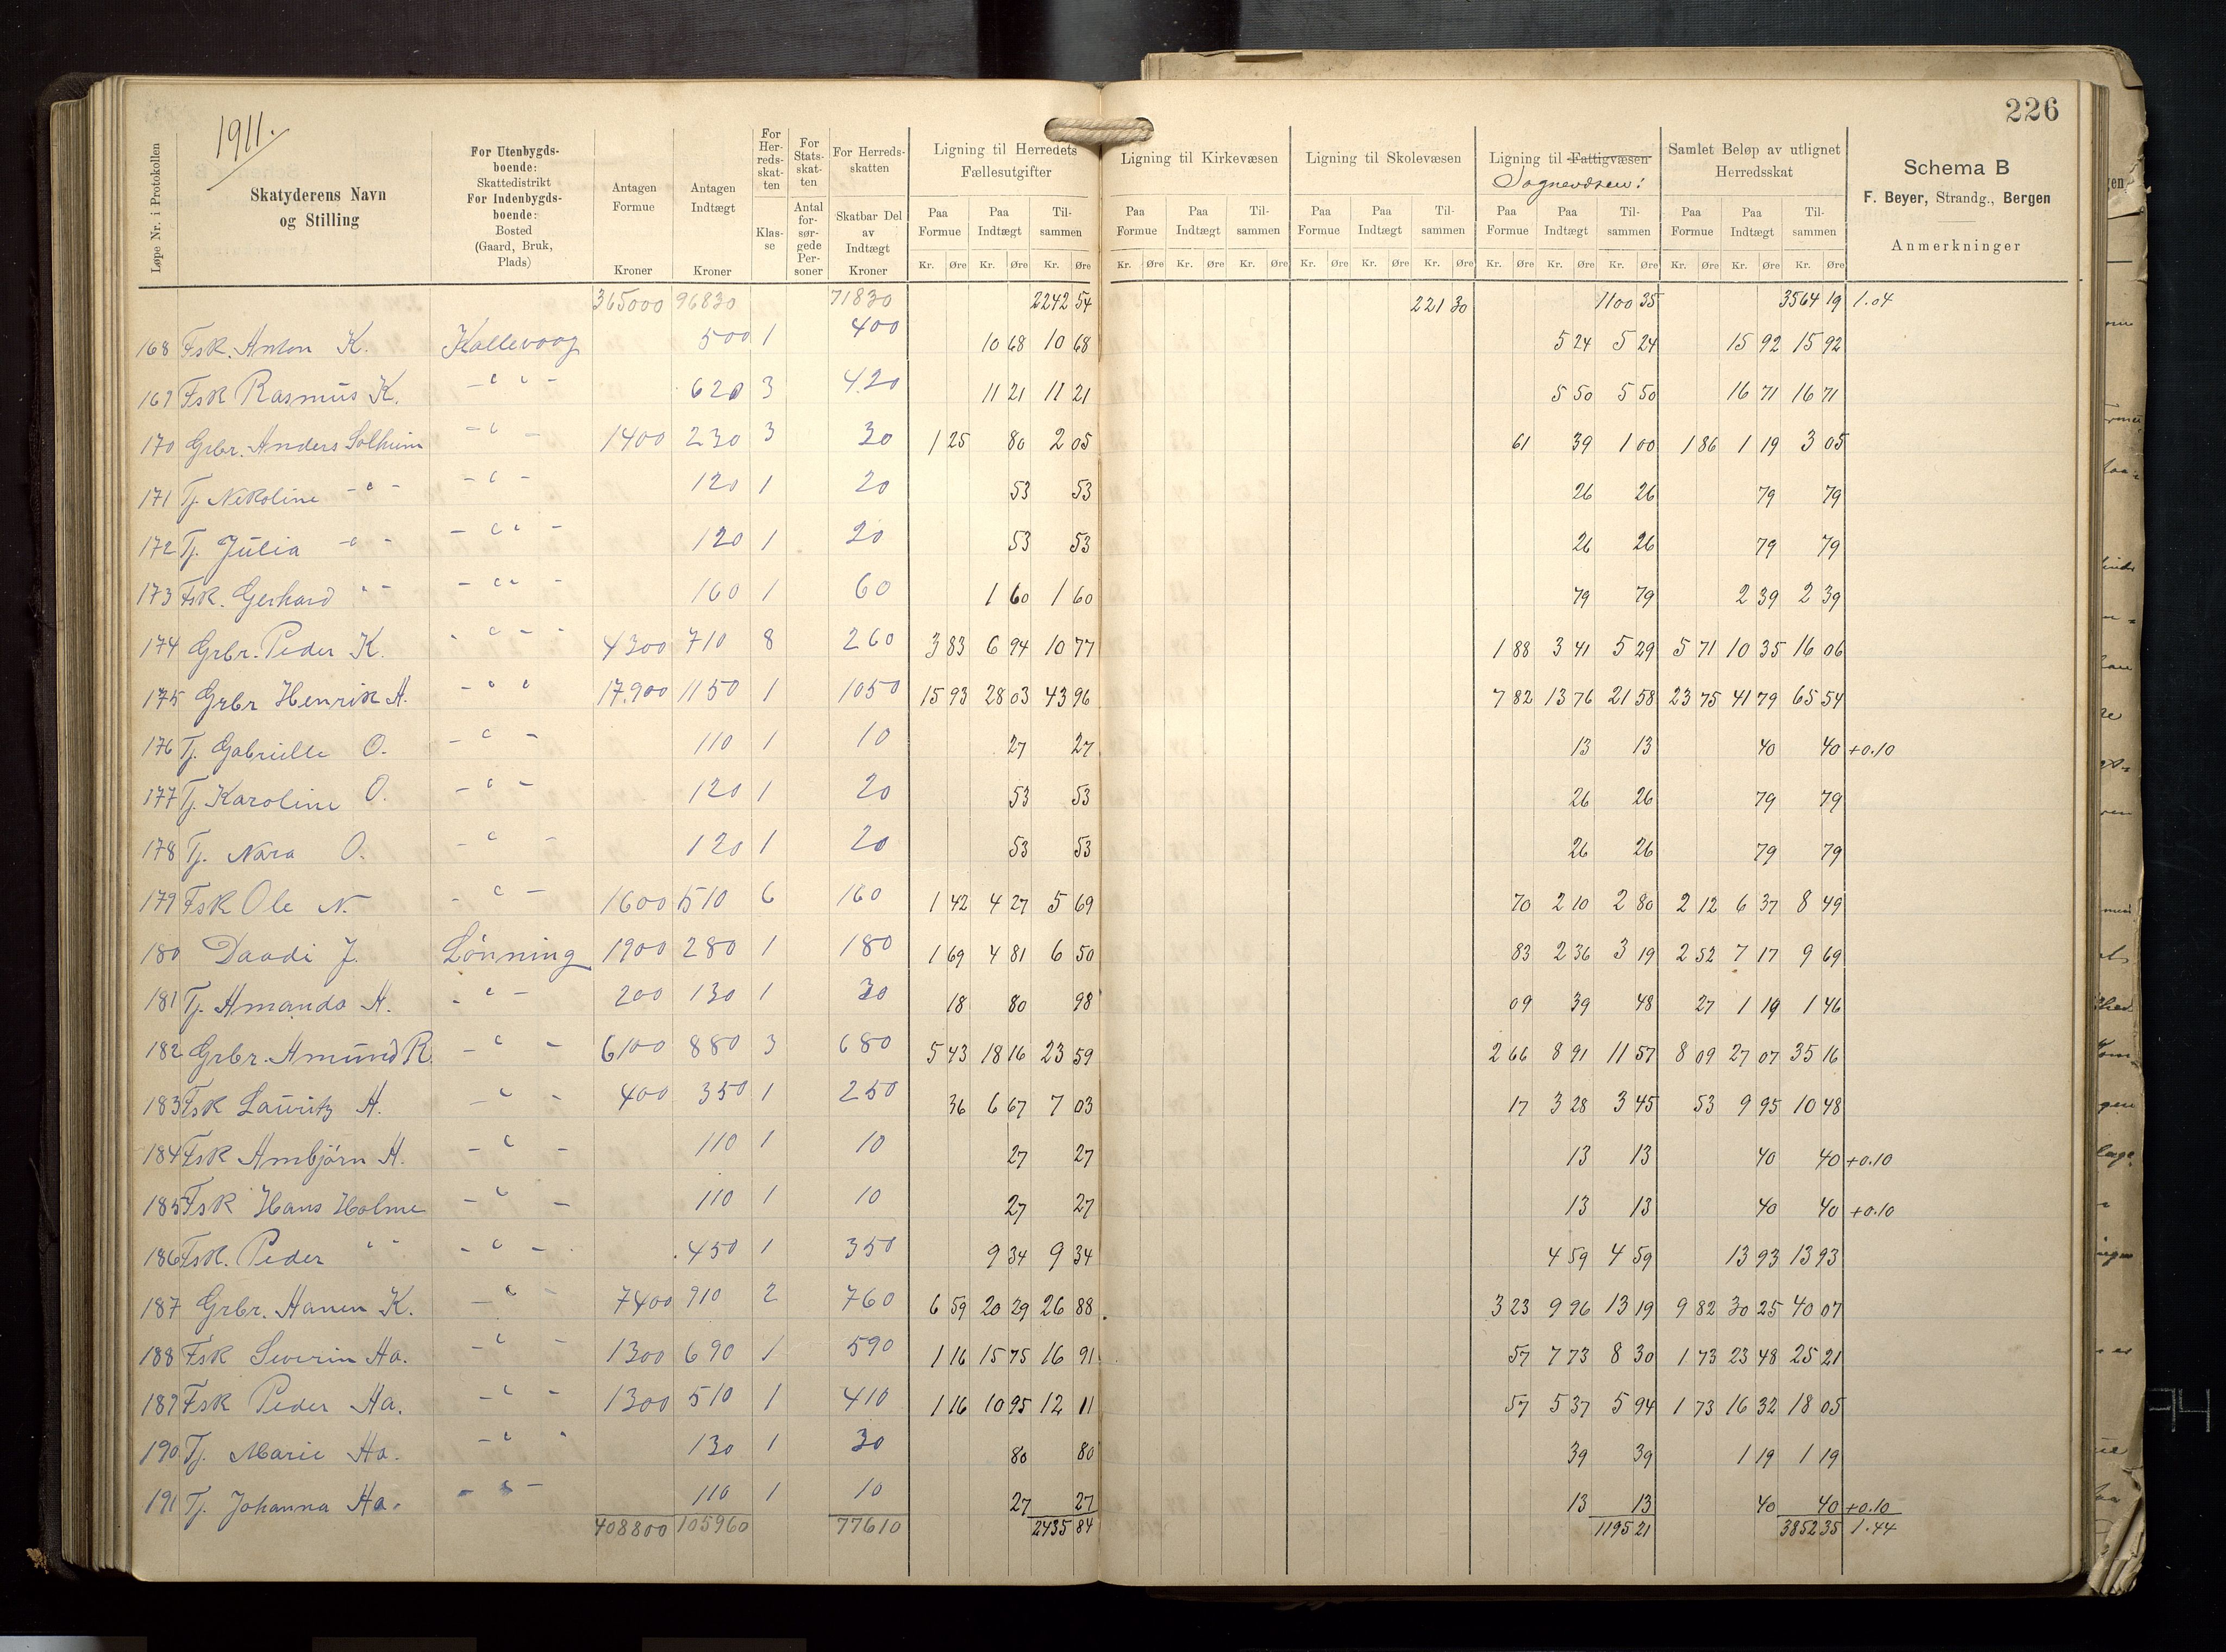 1911.
226
Løpe Nr. i Protokollen
Skatyderens Navn og Stilling
For Utenbygdsboende: Skattedistrikt For Indenbygdsboende: Bosted (Gaard, Bruk, Plads)
Antagen Formue Kroner
Antagen Indtægt Kroner
For Herredsskatten Klasse
For Statsskatten Antal forsørgede Personer
For Herredsskatten Skatbar Del av Indtægt Kroner
Ligning til Herredets Fællesutgifter
Ligning til Kirkevæsen
Ligning til Skolevæsen
Ligning til Fattigvæsen
Samlet Beløp av utlignet Herredsskat
Schema B
F. Beyer, Strandg., Bergen
Anmerkninger
Paa Formue Paa Indtægt Tilsammen Paa Formue Paa Indtægt Tilsammen Paa Formue Paa Indtægt Tilsammen Paa Formue Paa Indtægt Tilsammen Paa Formue Paa Indtægt Tilsammen
Kr. Øre Kr. Øre Kr. Øre Kr. Øre Kr. Øre Kr. Øre Kr. Øre Kr. Øre Kr. Øre Kr. Øre Kr. Øre Kr. Øre Kr. Øre Kr. Øre Kr. Øre
365000 96830 71830 2242 54 221 30 1100 35 3564 19 1.04
168 Fsk. Anton K. Kallevaag 500 1 400 10 68 10 68 5 24 5 24 15 92 15 92
169 Fsk Rasmus K. - " - 620 3 420 11 21 11 21 5 50 5 50 16 71 16 71
170 Grbr. Anders Solheim - " - 1400 230 3 30 1 25 80 2 05 61 39 1 00 1 86 1 19 3 05
171 Tj. Nikoline - " - - " - 120 1 20 53 53 26 26 79 79
172 Tj. Julia - " - - " - 120 1 20 53 53 26 26 79 79
173 Fsk. Gerhard - " - - " - 160 1 60 1 60 1 60 79 79 2 39 2 39
174 Grbr. Peder K. - " - 4300 710 8 260 3 83 6 94 10 77 1 88 3 41 5 29 5 71 10 35 16 06
175 Grbr Henrik A. - " - 17.900 1150 1 1050 15 93 28 03 43 96 7 82 13 76 21 58 23 75 41 79 65 54
176 Tj. Gabrielle O. - " - 110 1 10 27 27 13 13 40 40 +0.10
177 Tj. Karoline O. - " - 120 1 20 53 53 26 26 79 79
178 Tj. Nara O. - " - 120 1 20 53 53 26 26 79 79
179 Fsk Ole N. - " - 1600 510 6 160 1 42 4 27 5 69 70 2 10 2 80 2 12 6 37 8 49
180 Daadi J. Lønning 1900 280 1 180 1 69 4 81 6 50 83 2 36 3 19 2 52 7 17 9 69
181 Tj. Amanda A. - " - 200 130 1 30 18 80 98 09 39 48 27 1 19 1 46
182 Grbr. Amund R. - " - 6100 880 3 680 5 43 18 16 23 59 2 66 8 91 11 57 8 09 27 07 35 16
183 Fsk Lauritz A. - " - 400 350 1 250 36 6 67 7 03 17 3 28 3 45 53 9 95 10 48
184 Fsk Ambjørn A. - " - 110 1 10 27 27 13 13 40 40 +0.10
185 Fsk Hans Holme - " - 110 1 10 27 27 13 13 40 40 +0.10
186 Fsk. Peder " - " - 450 1 350 9 34 9 34 4 59 4 59 13 93 13 93
187 Grbr. K. - " - 7400 910 2 760 6 59 20 29 26 88 3 23 9 96 13 19 9 82 30 25 40 07
188 Fsk Severin Ha. - " - 1300 690 1 590 1 16 15 75 16 91 57 7 73 8 30 1 73 23 48 25 21
189 Fsk Peder Ha. - " - 1300 510 1 410 1 16 10 95 12 11 57 5 37 5 94 1 73 16 32 18 05
190 Tj. Marie Ha. - " - 130 1 30 80 80 39 39 1 19 1 19
191 Tj. Johanna Ha. - " - 110 1 10 27 27 13 13 40 40 +0.10
408800 105960 77610 2435 84 1195 21 3852 35 1.44